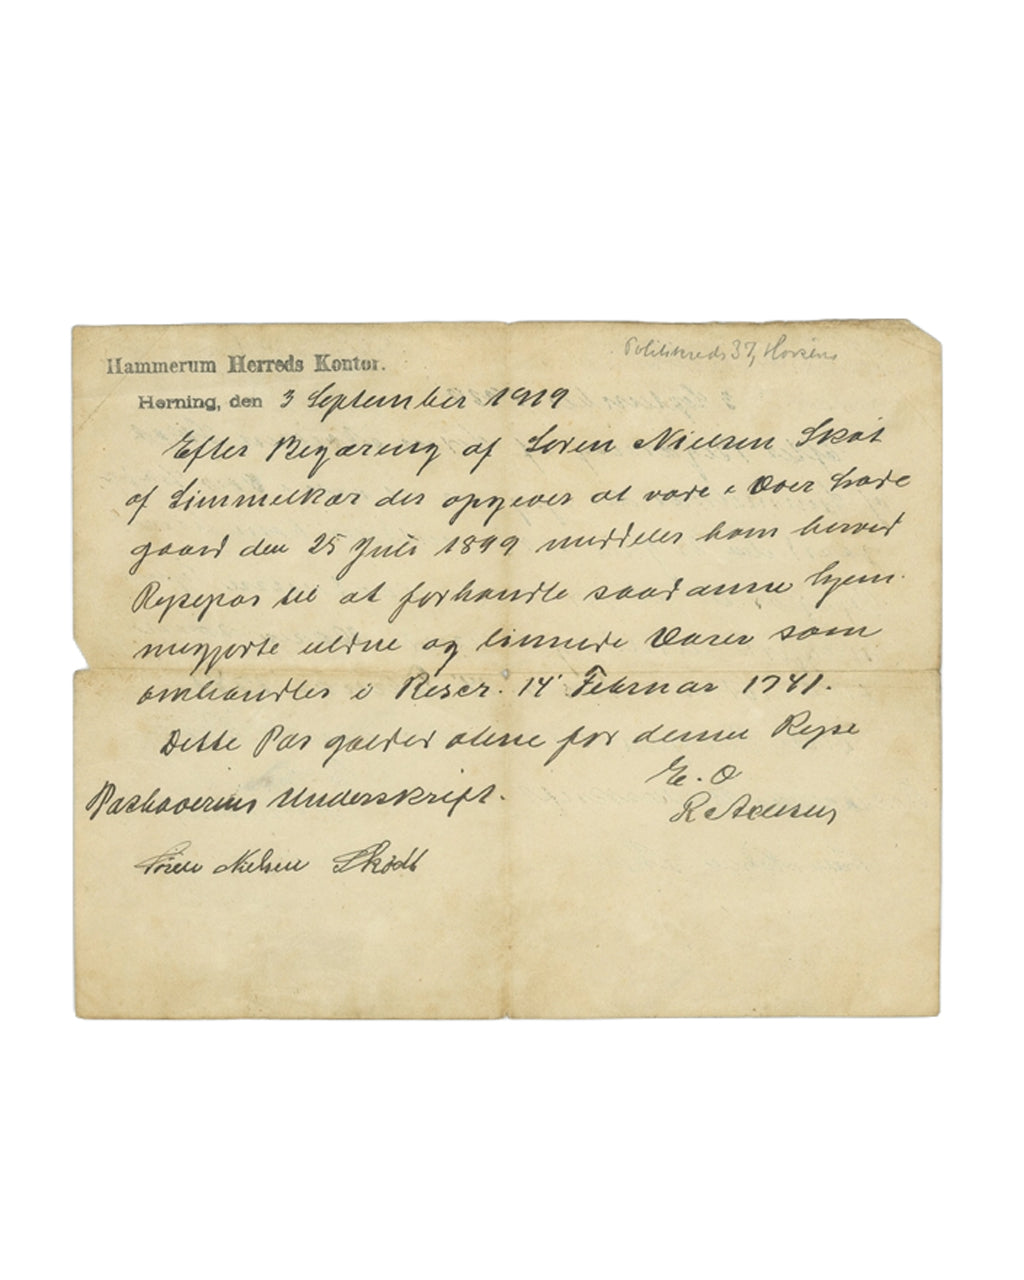 Politikreds 37, Horsens
Hammerum Herreds Kontor.
Herning, den 3 September 1919
Efter Begæring af Søren Nielsen Skøt
af Simmelkær der opgiver at være i Over
gaard den 25 Juli 1899 meddeles ham herved
Rejsepas til at forhandle saadanne hjem-
megjorte uldne og linnede Varer som
omhandles i Rescr. 14' Februar 1741.
Dette Pas gælder alene for denne Rejse
E. O
Pashaverens Underskrift.
Søren Nielsen Skødt